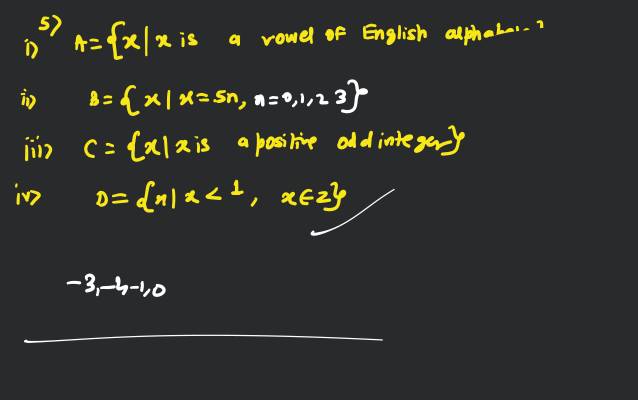 5)
i) A={x|x is a vowel of English alphabet}
ii) B={x|x=5n, n=0,1,2 3}
iii) C={x|x is a positive odd integer}
iv) D={x|x<1, x∈z}
-3,-2-1,0